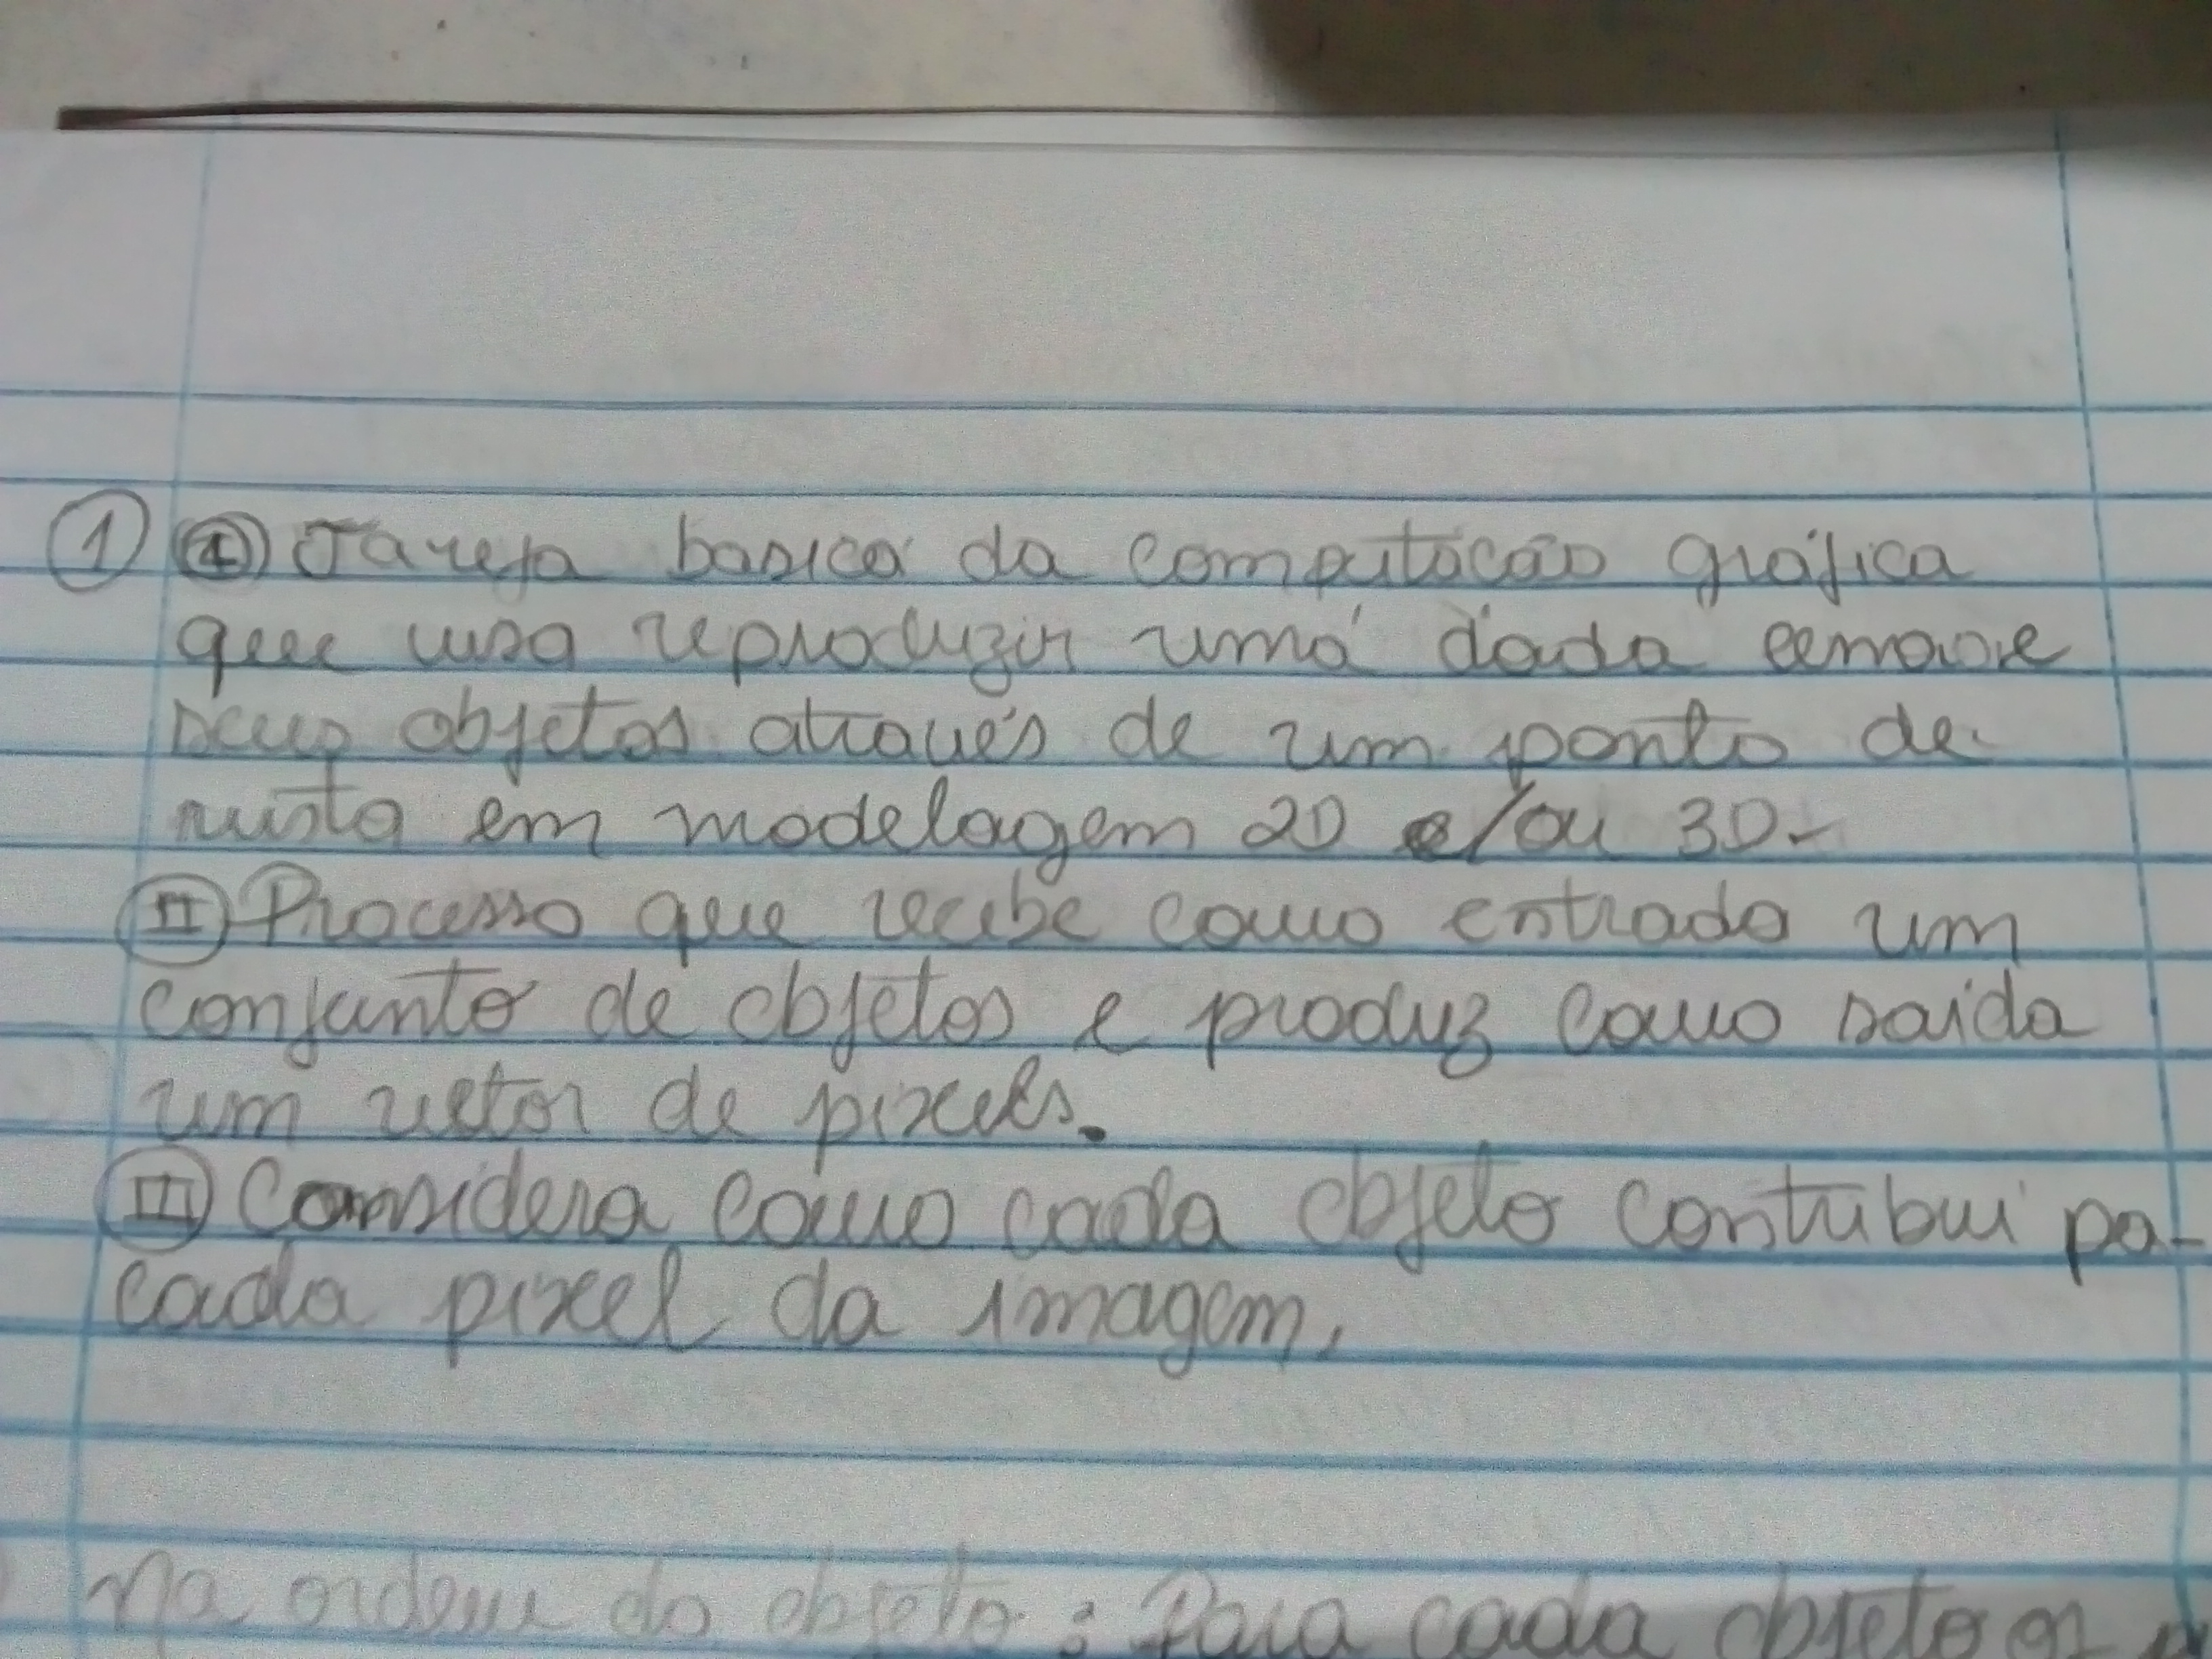 ① Ⓘ Tarefa basica da computacão gráfica
que visa reproduzir uma dada cena e
seus objetos através de um ponto de
vista em modelagem 2D e/ou 3D.
Ⅱ Processo que recebe como entrada um
conjunto de objetos e produz como saída
um vetor de pixels.
Ⅲ Considera como cada objeto contribui pa-
cada pixel da imagem.
Na ordem do objeto: Para cada objeto